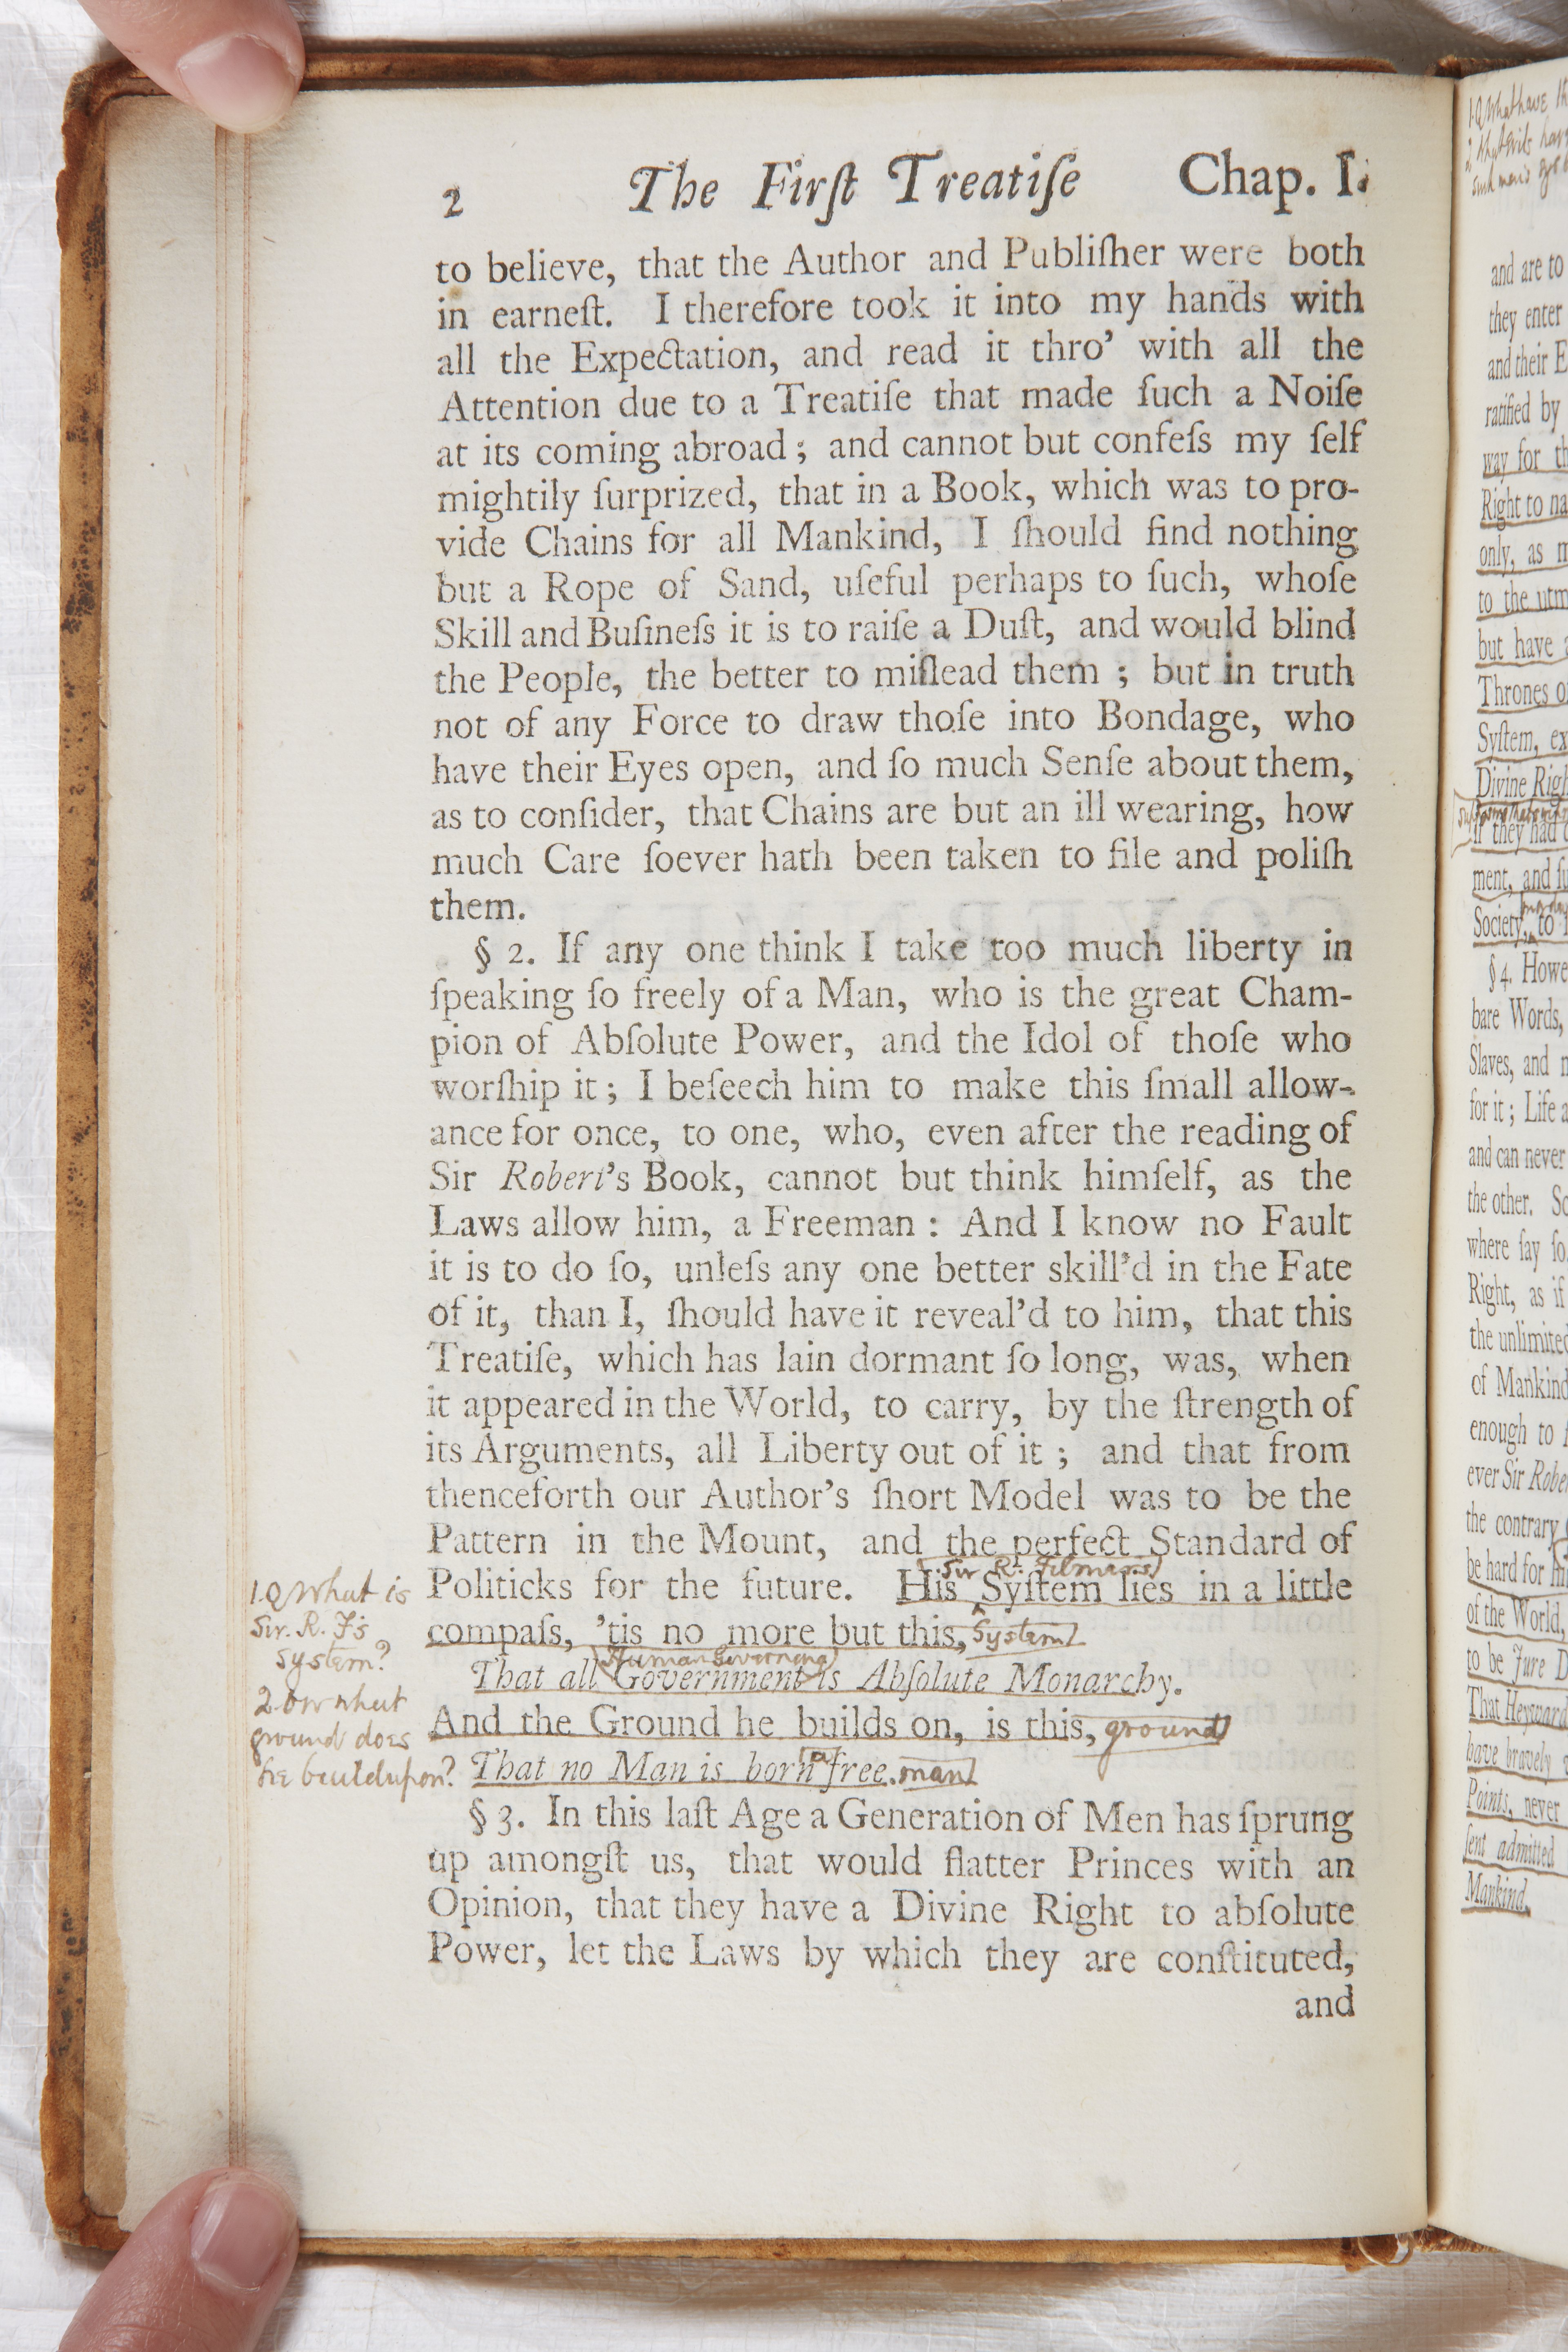 2 The Firſt Treatiſe Chap. I.
to believe, that the Author and Publiſher were both
in earneſt. I therefore took it into my hands with
all the Expectation, and read it thro' with all the
Attention due to a Treatiſe that made ſuch a Noiſe
at its coming abroad; and cannot but confeſs my ſelf
mightily ſurprized, that in a Book, which was to pro-
vide Chains for all Mankind, I ſhould find nothing
but a Rope of Sand, uſeful perhaps to ſuch, whoſe
Skill and Buſineſs it is to raiſe a Duſt, and would blind
the People, the better to miſlead them; but in truth
not of any Force to draw thoſe into Bondage, who
have their Eyes open, and ſo much Senſe about them,
as to conſider, that Chains are but an ill wearing, how
much Care ſoever hath been taken to file and poliſh
them.
§ 2. If any one think I take too much liberty in
ſpeaking ſo freely of a Man, who is the great Cham-
pion of Abſolute Power, and the Idol of thoſe who
worſhip it; I beſeech him to make this ſmall allow-
ance for once, to one, who, even after the reading of
Sir Robert's Book, cannot but think himſelf, as the
Laws allow him, a Freeman: And I know no Fault
it is to do ſo, unleſs any one better skill'd in the Fate
of it, than I, ſhould have it reveal'd to him, that this
Treatiſe, which has lain dormant ſo long, was, when
it appeared in the World, to carry, by the ſtrength of
its Arguments, all Liberty out of it; and that from
thenceforth our Author's ſhort Model was to be the
Pattern in the Mount, and the perfect Standard of
Sir R. Filmers
Politicks for the future. His Syſtem lies in a little
compaſs, 'tis no more but this, System
Human Governeng
That all Government is Abſolute Monarchy.
And the Ground he builds on, is this, ground
That no Man is born a free. man
§ 3. In this laſt Age a Generation of Men has ſprung
up amongſt us, that would flatter Princes with an
Opinion, that they have a Divine Right to abſolute
Power, let the Laws by which they are conſtituted,
and
1. Q What is
Sir. R. F's
system?
2. On what
ground does
he beuldupon?
1. Q What have
and are to
they enter
and their
ratified by
way for
Right to
only, as
to the
but have
Thrones
Syſtem,
Divine
if they had
ment, and
Society, to
§ 4.
bare Words,
Slaves, and
for it; Life
and can never
the other.
where ſay
Right, as if
the unlimited
of Mankind
enough to
ever Sir
the contrary
be hard for
of the World,
to be Jure
That Heyward
have bravely
Points, never
ſent admitted
Mankind.